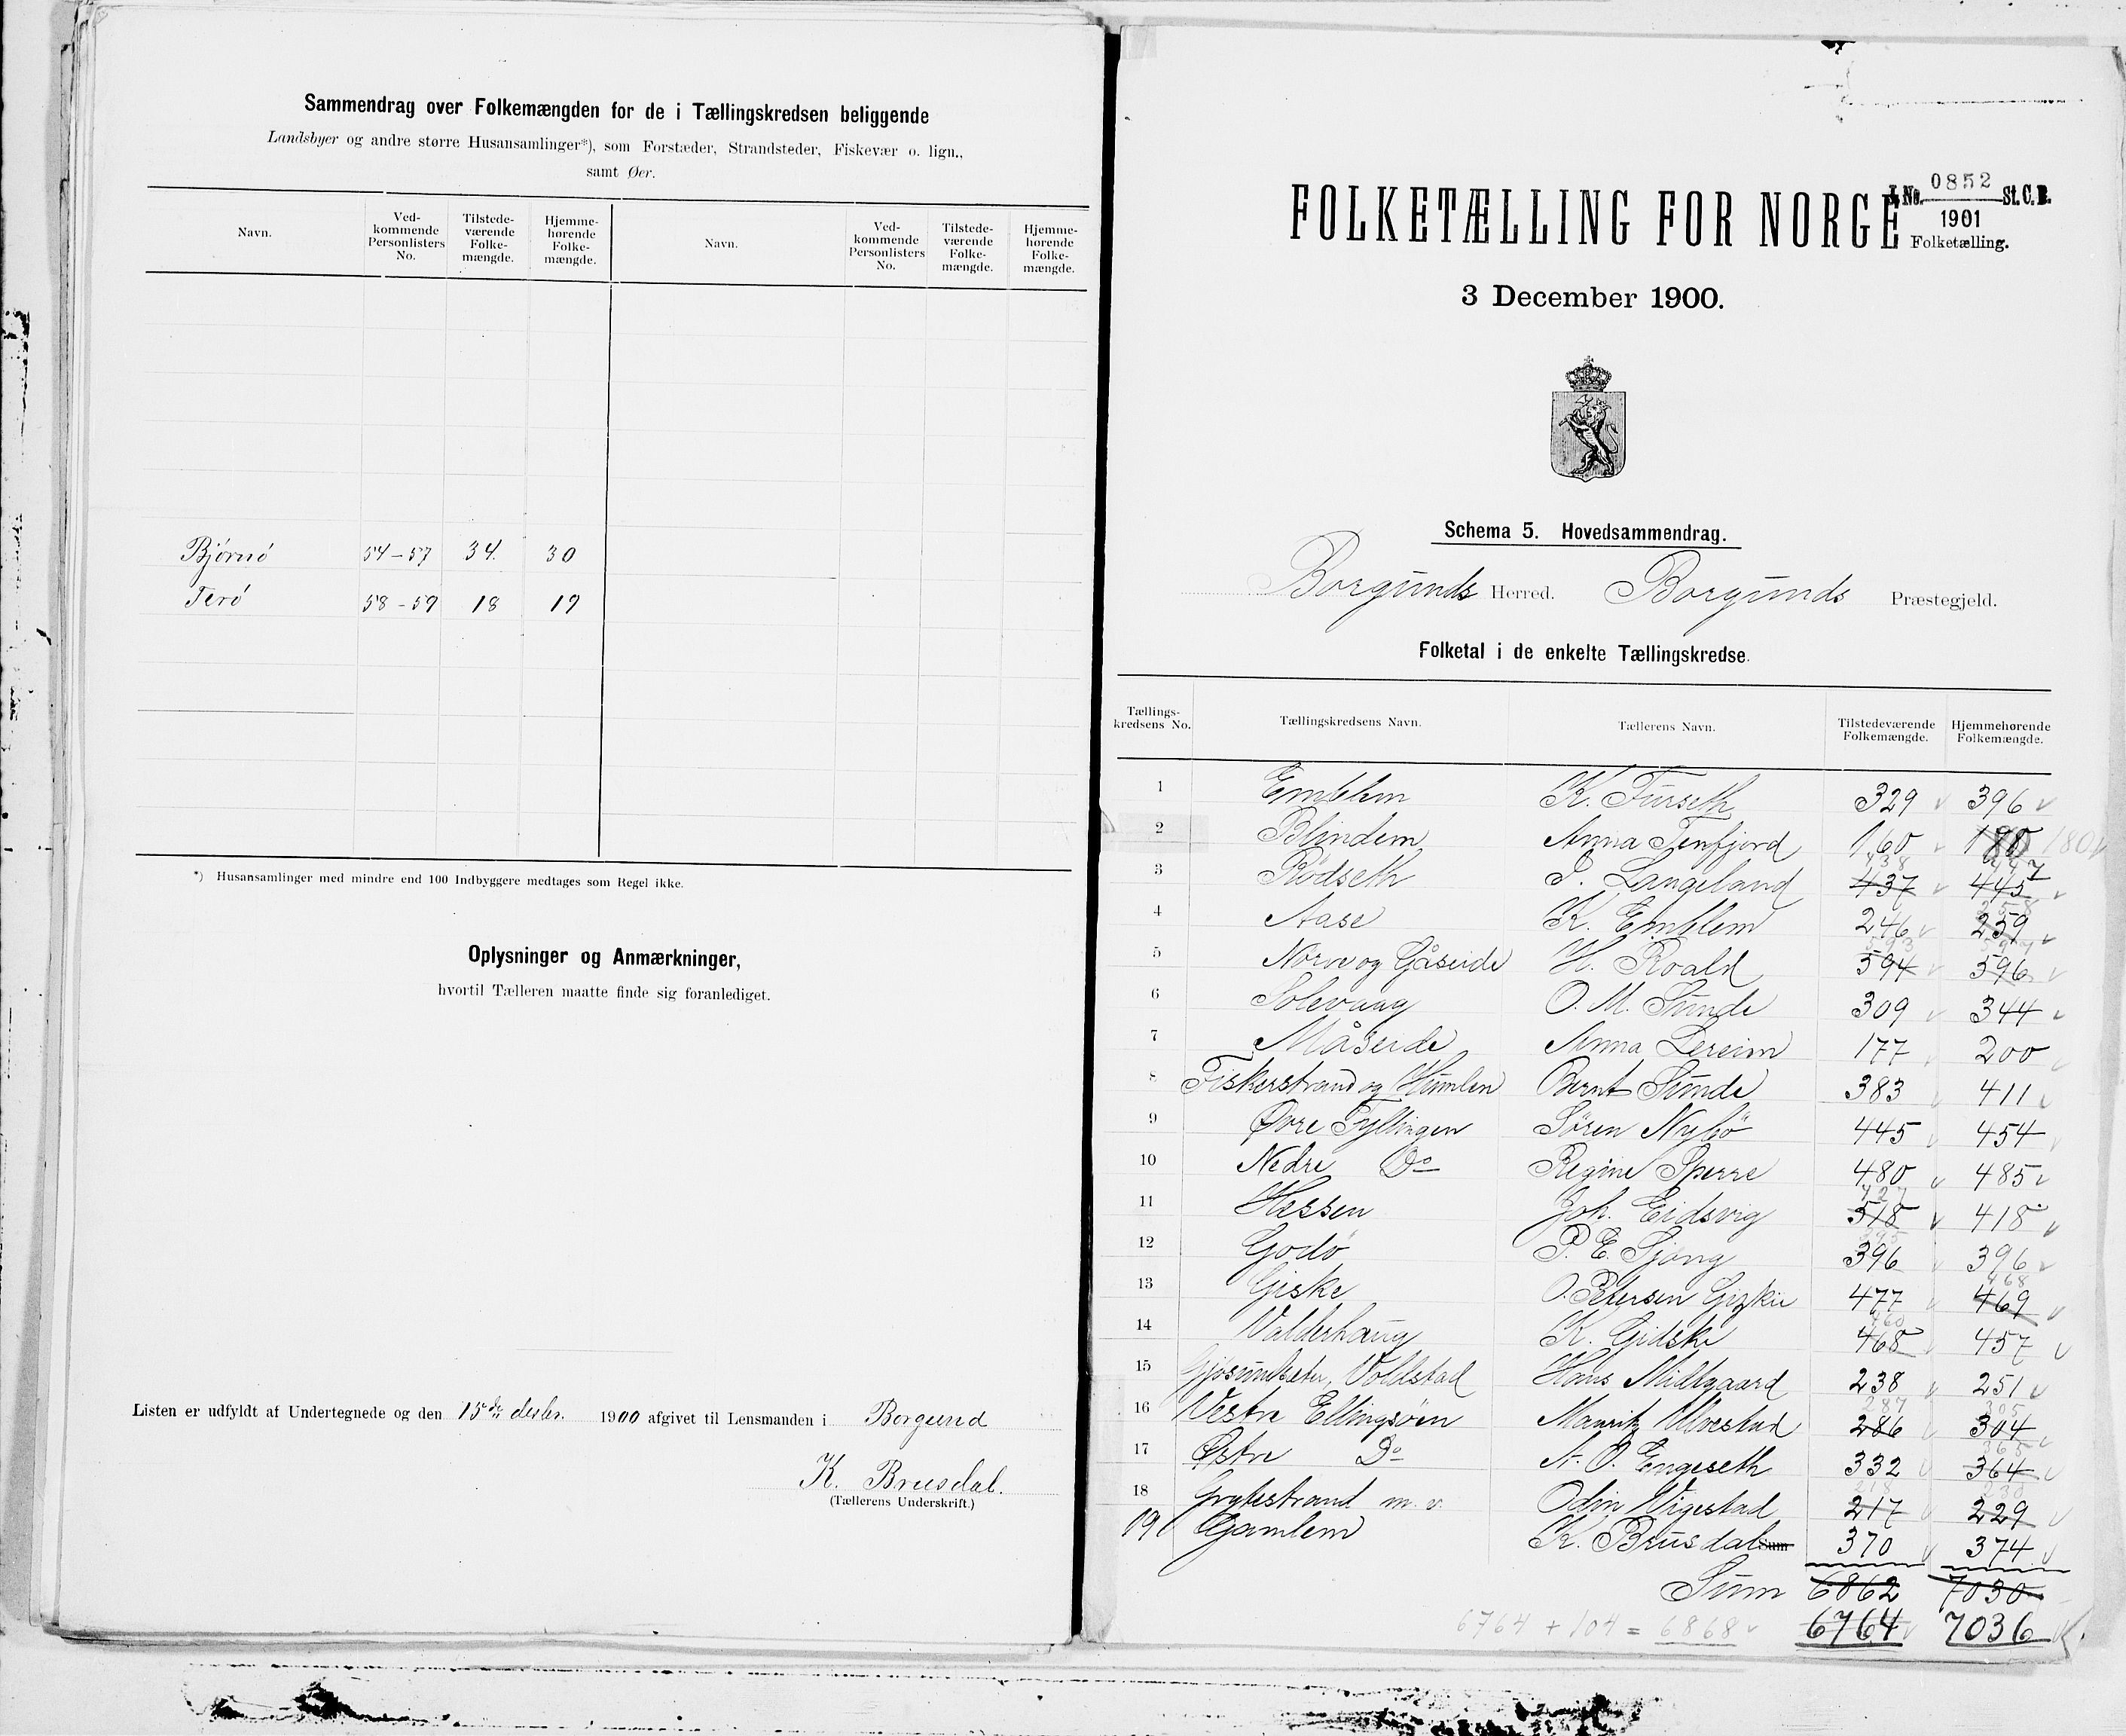 Sammendrag over Folkemængden for de i Tællingskredsen beliggende
Landsbyer og andre større Husansamlinger*), som Forstæder, Strandsteder, Fiskevær o. lign.,
samt Øer.
Navn. Ved-kommende Personlisters No. Tilstede-værende Folke-mængde. Hjemme-hørende Folke-mængde. Navn. Ved-kommende Personlisters No. Tilstede-værende Folke-mængde. Hjemme-hørende Folke-mængde.
Bjørnø 54-57 34. 30
Terø 58-59 18 19
*) Husansamlinger med mindre end 100 Indbyggere medtages som Regel ikke.
Oplysninger og Anmærkninger,
hvortil Tælleren maatte finde sig foranlediget.
Listen er udfyldt af Undertegnede og den 15de decbr. 1900 afgivet til Lensmanden i Borgund
K. Brusdal.
(Tællerens Underskrift.)
FOLKETÆLLING FOR NORGE
J. No. 0852 St. C. B.
1901
Folketælling.
3 December 1900.
Schema 5. Hovedsammendrag.
Borgunds Herred. Borgunds Præstegjeld.
Folketal i de enkelte Tællingskredse.
Tællings-kredsens No. Tællingskredsens Navn. Tællerens Navn. Tilstedeværende Folkemængde. Hjemmehørende Folkemængde.
1 Emblem K. Furseth 329 396
2 Blindem Anna Tenfjord 160 180
3 Rödseth P. Langeland 438 437 447 445
4 Aase K. Emblem 246 258 259
5 Nørve og Gåseide H. Roald 593 594 597 596
6 Solevaag O. M. Sunde 309 344
7 Måseide Anna Lereim 177 200
8 Fiskerstrand og Humlen Bernt Sunde 383 411
9 Øvre Fyllingen Søren Nybö 445 454
10 Nedre Do Regine Sperre 480 485
11 Hessen Joh. Eidsvig 427 518 418
12 Godø P. E. Sjong 395 396 396
13 Giske O. Petersen Gizkie 477 468 469
14 Valderhaug K. Gidske 460 468 457
15 Voldstad Hans Midtgaard 238 251
16 Vestre Ellingsøen Mauritz Ulvestad 287 286 305 304
17 Østre Do A. O. Engeseth 332 365 364
18 Grytestrand m. v. Odin Vigestad 218 217 230 229
19 Gamlem K. Brusdal Sum 370 374
Sum 6862 7030
6764 + 104 = 6868 6764 7036